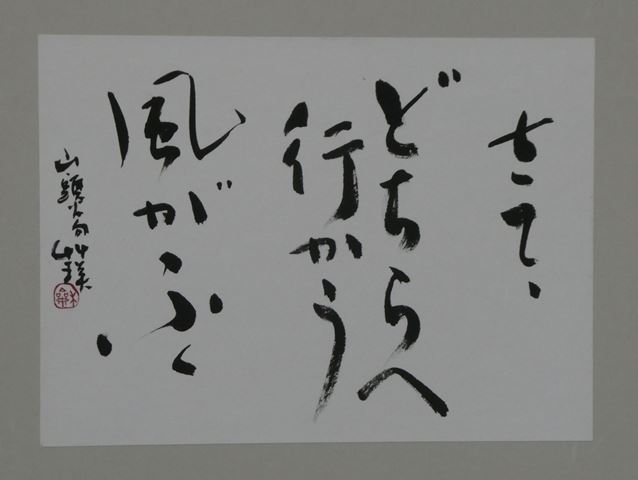 さて、
どちらへ
行かう
風がふく
山頭火句